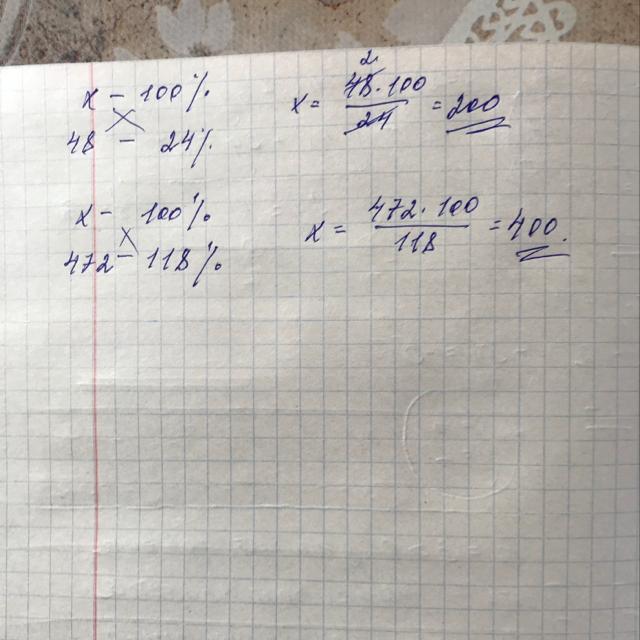 x - 100%
48 - 24%
x = 48·100 / 24 = 200
2
x - 100%
472 - 118%
x = 472·100 / 118 = 400.